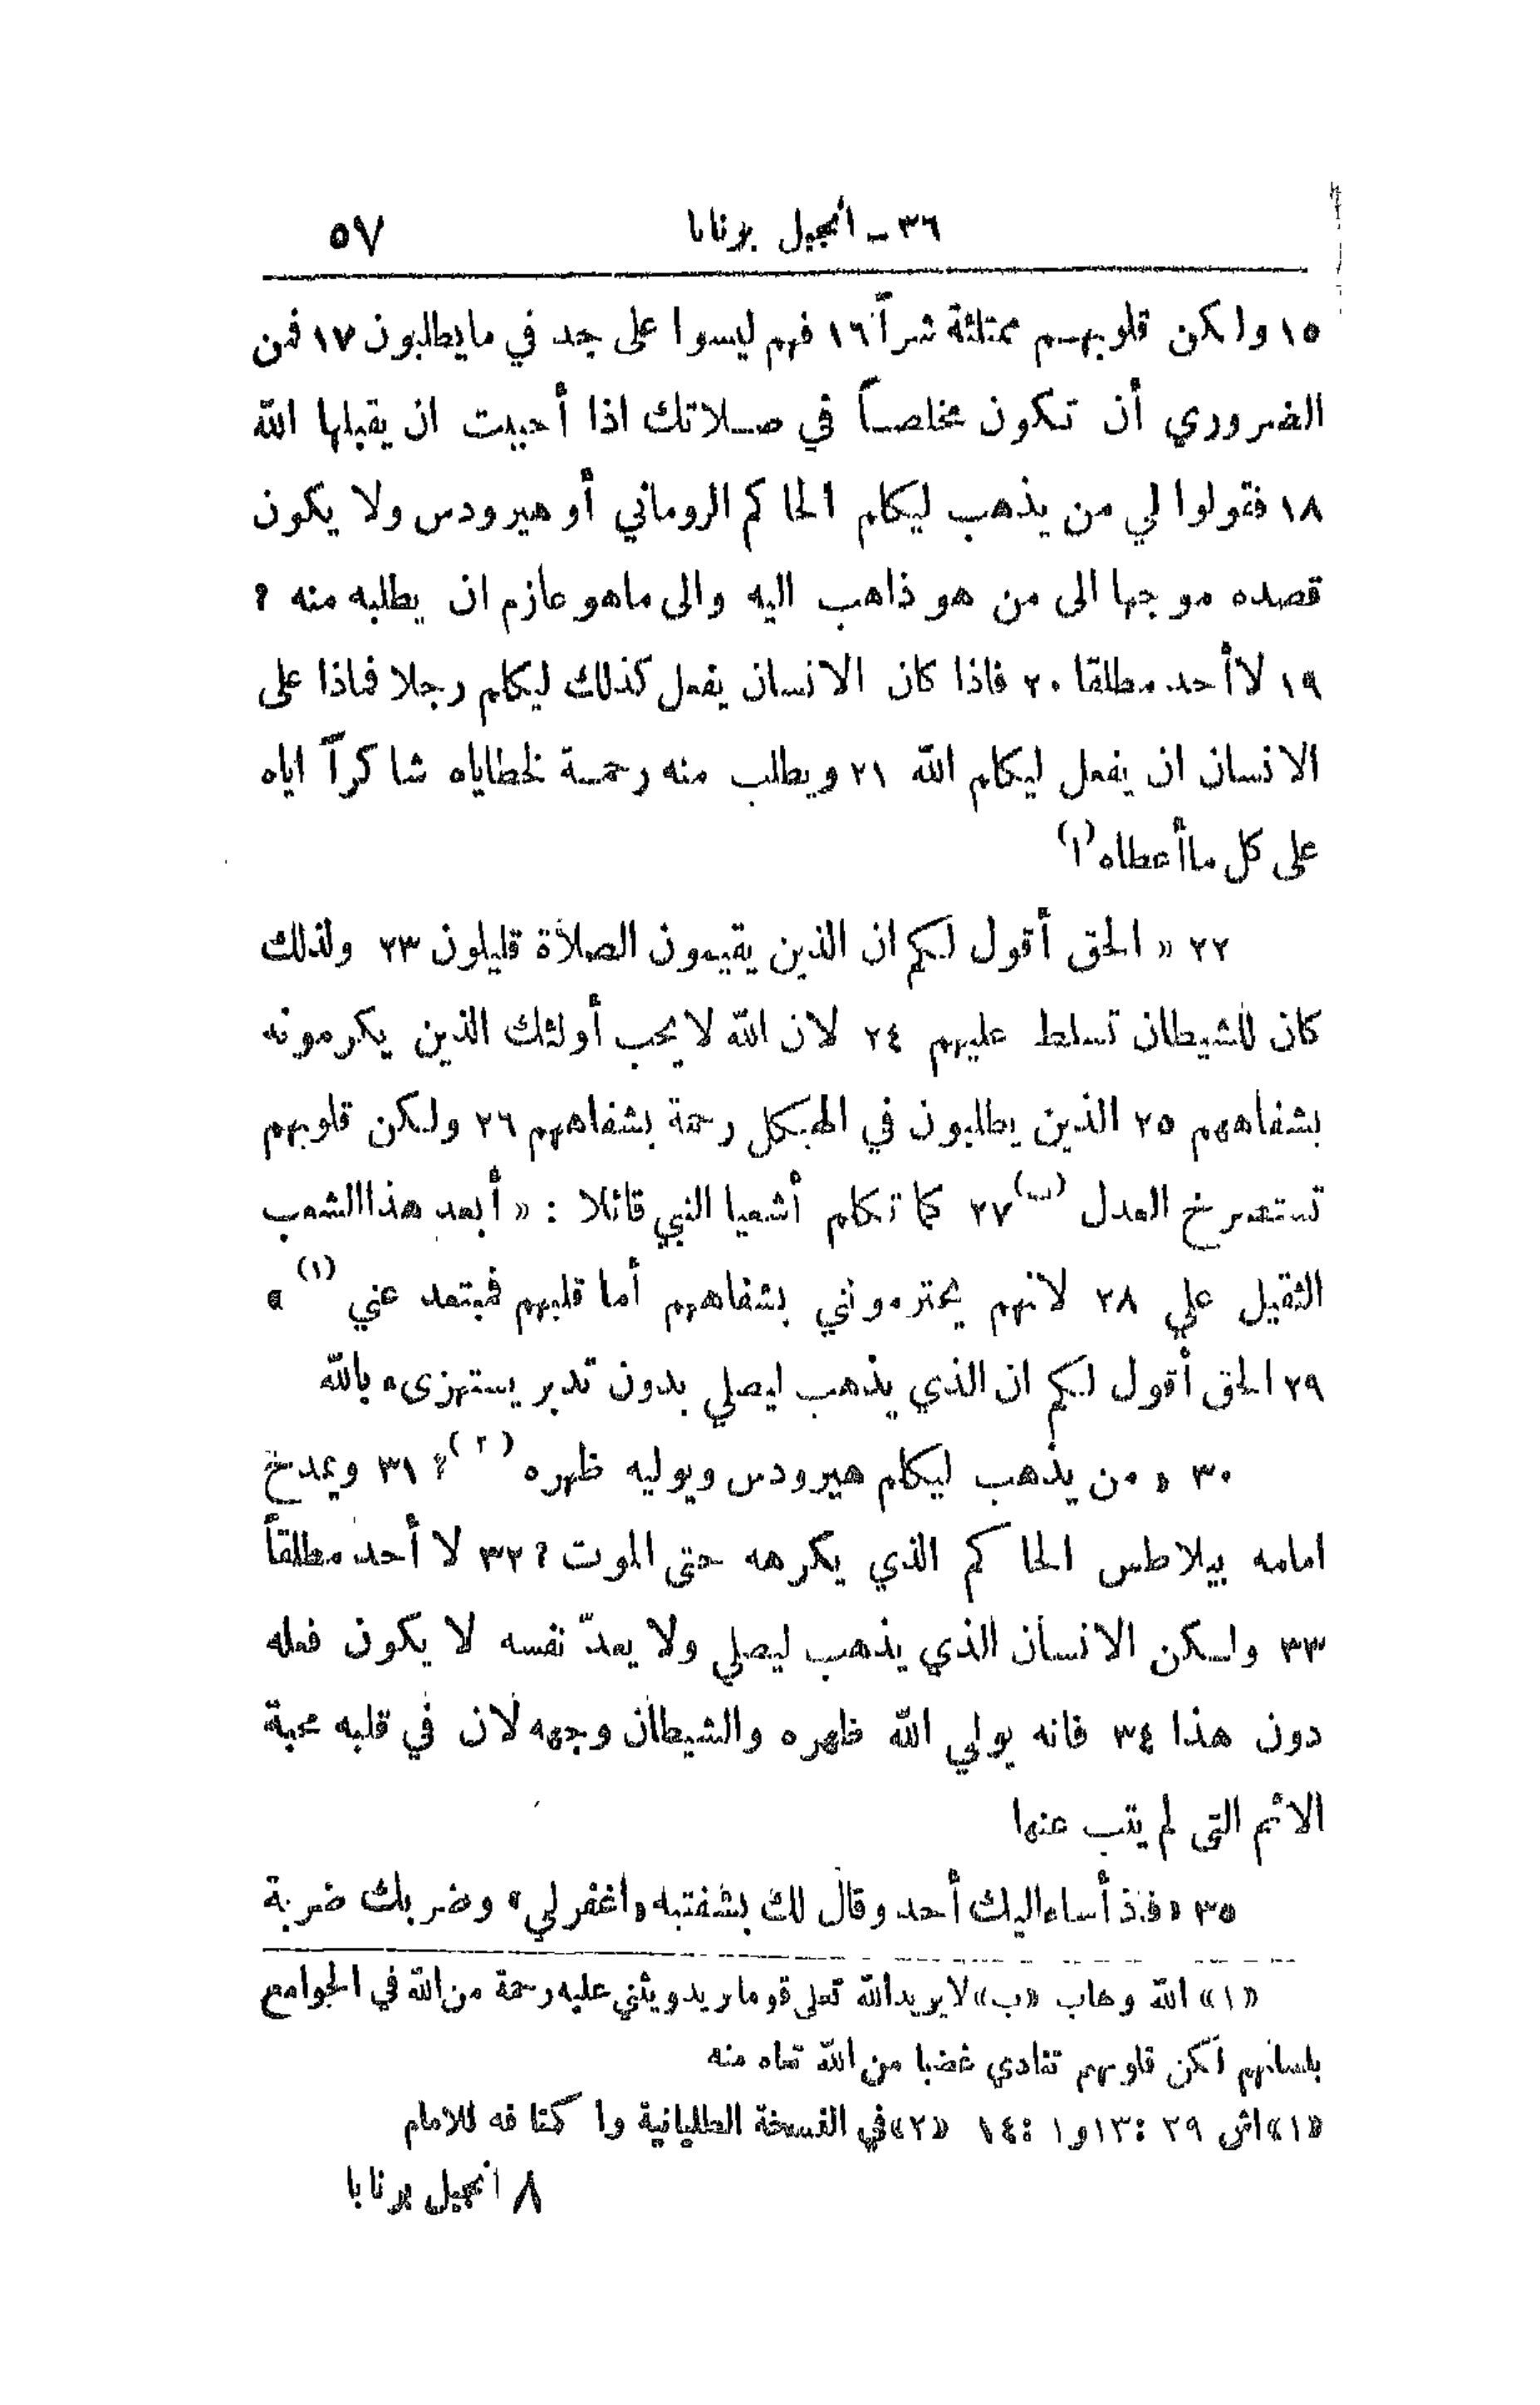 ٣٦ - انجيل برنابا ٥٧
١٥ ولكن قلوبهم ممتلئة شراً ١٦ فهم ليسوا على جد في ما يطلبون ١٧ فمن
الضروري أن تكون مخلصاً في صلاتك اذا أحببت ان يقبلها الله
١٨ فقولوا لي من يذهب ليكلم الحاكم الروماني أو هيرودس ولا يكون
قصده موجها الى من هو ذاهب اليه والى ماهو عازم ان يطلبه منه ؟
١٩ لا أحد مطلقا ٢٠ فاذا كان الانسان يفعل كذلك ليكلم رجلا فماذا على
الانسان ان يفعل ليكلم الله ٢١ ويطلب منه رحمة لخطاياه شاكراً اياه
على كل ما أعطاه (ا)
٢٢ « الحق أقول لكم ان الذين يقيمون الصلاة قليلون ٢٣ ولذلك
كان للشيطان تسلط عليهم ٢٤ لان الله لا يحب أولئك الذين يكرمونه
بشفاههم ٢٥ الذين يطلبون في الهيكل رحمة بشفاههم ٢٦ ولكن قلوبهم
تستصرخ العدل (ب) ٢٧ كما تكلم أشعيا النبي قائلا : « أبعد هذا الشعب
الثقيل علي ٢٨ لانهم يحترمونني بشفاههم أما قلبهم فمبتعد عني (١) »
٢٩ الحق أقول لكم ان الذي يذهب ليصلي بدون تدبر يستهزىء بالله
٣٠ « من يذهب ليكلم هيرودس ويوليه ظهره (٢) ؟ ٣١ ويمدح
امامه بيلاطس الحاكم الذي يكرهه حتى الموت ؟ ٣٢ لا أحد مطلقاً
٣٣ ولكن الانسان الذي يذهب ليصلي ولا يعدّ نفسه لا يكون فعله
دون هذا ٣٤ فانه يولي الله ظهره والشيطان وجهه لان في قلبه محبة
الاثم التى لم يتب عنها
٣٥ « فاذ أساء اليك أحد وقال لك بشفتيه « اغفر لي » وضربك ضربة
«ا» الله وهاب «ب» لا يريد الله تعلى قوما يريد ويثني عليه رحمة من الله في الجوامع
بلسانهم لكن قلوبهم تنادي غضبا من الله منه
«١» اش ٢٩ : ١٣ و ١ : ١٤ «٢» في النسخة الطليانية وا كتافه للامام
٨ انجيل برنابا